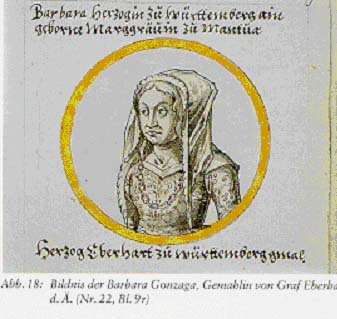 Barbara Herzogin zů Württemberg ain
geborne Marggräuin zů Mantua
Herzog Eberhart zů Württemberg gmal
Abb. 18: Bildnis der Barbara Gonzaga, Gemahlin von Graf Eberha
d. Ä. (Nr. 22, Bl. 9r)